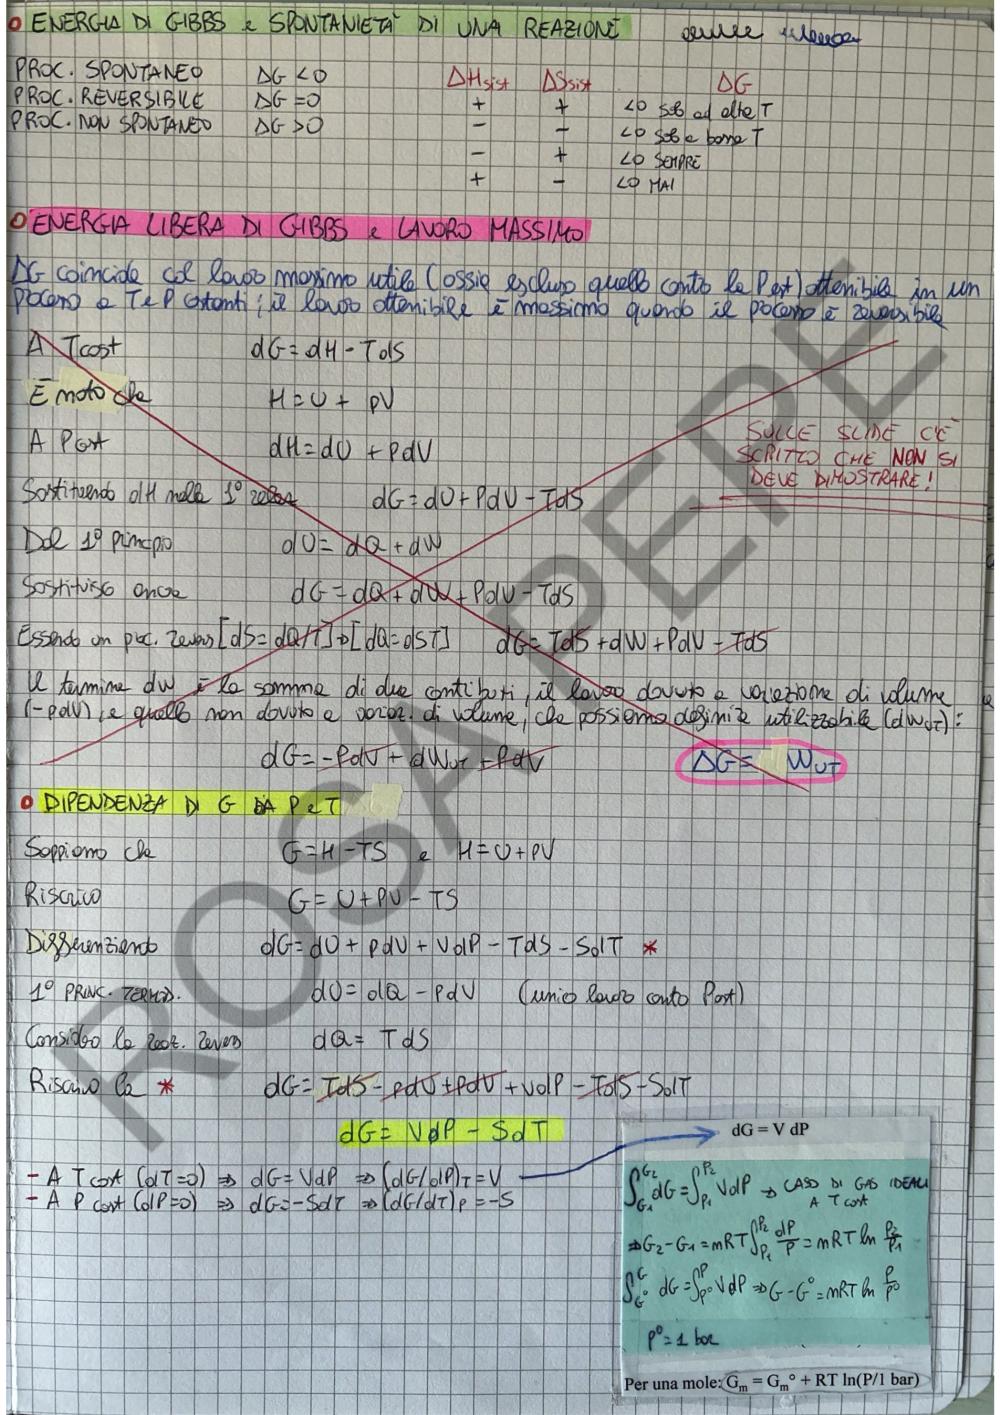 ENERGIA DI GIBBS e SPONTANIETA' DI UNA REAZIONE
PROC. SPONTANEO ΔG <0 ΔHsist ΔSsist ΔG
PROC. REVERSIBILE ΔG =0 + + <0 solo ad alte T
PROC. NON SPONTANEO ΔG >0 - - <0 solo a basse T
- + <0 SEMPRE
+ - <0 MAI
ENERGIA LIBERA DI GIBBS e LAVORO MASSIMO
ΔG coincide col lavoro massimo utile (ossia escluso quello contro la Pest) ottenibile in un
processo a T e P costanti; il lavoro ottenibile è massimo quando il processo è reversibile
A Tcost dG = dH - TdS
È noto che H = U + PV
A Pcost dH = dU + PdV
SULLE SLIDE C'È
SCRITTO CHE NON SI
DEVE DIMOSTRARE!
Sostituendo dH nella 1° relaz dG = dU + PdV - TdS
Dal 1° principio dU = dQ + dW
Sostituisco ancora dG = dQ + dW + PdV - TdS
Essendo un proc. revers [dS = dQ/T] → [dQ = dST] dG = TdS + dW + PdV - TdS
Il termine dW è la somma di due contributi, il lavoro dovuto a variazione di volume
(-pdV), e quello non dovuto a variaz. di volume, che possiamo definire utilizzabile (dWUT):
dG = -PdV + dWUT + PdV ΔG = WUT
DIPENDENZA DI G DA P e T
Sappiamo che G = H - TS e H = U + PV
Riscrivo G = U + PV - TS
Differenziando dG = dU + PdV + VdP - TdS - SdT *
1° PRINC. TERMOD. dU = dQ - PdV (unico lavoro contro Pest)
Considero la reaz. revers dQ = TdS
Riscrivo la * dG = TdS - PdV + PdV + VdP - TdS - SdT
dG = VdP - SdT
- A T cost (dT=0) ⇒ dG = VdP ⇒ (dG/dP)T = V
- A P cost (dP=0) ⇒ dG = -SdT ⇒ (dG/dT)P = -S
dG = V dP
∫G1 G2 dG = ∫P1 P2 VdP → CASO DI GAS IDEALI
A T cost
⇒ G2 - G1 = nRT ∫P1 P2 dP/P = nRT ln P2/P1
∫G° G dG = ∫P° P VdP ⇒ G - G° = nRT ln P/P°
P° = 1 bar
Per una mole: Gm = Gm° + RT ln(P/1 bar)
ROSA PEPE